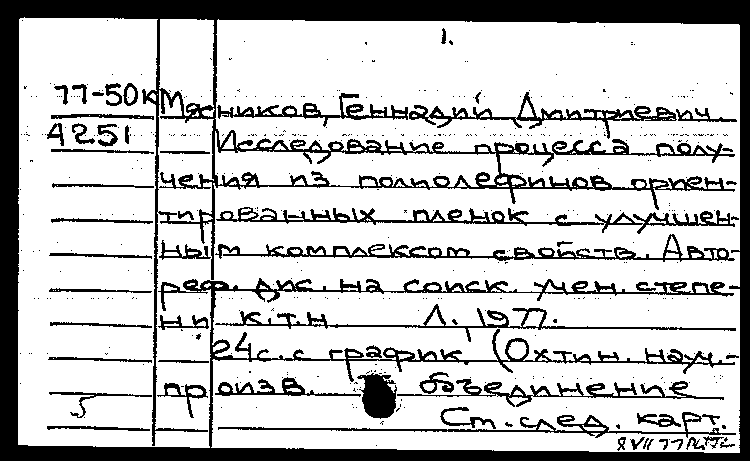 1.
77-50к Мясников, Геннадий Дмитриевич.
4251 Исследование процесса полу-
чения из полиолефинов ориен-
тированных пленок с улучшен-
ным комплексом свойств. Авто-
реф. дис. на соиск. учен. степе-
ни к.т.н. Л., 1977.
24с. с график. (Охтин. науч.-
произв. объединение
5
Ст. след. карт.
8 VII 77